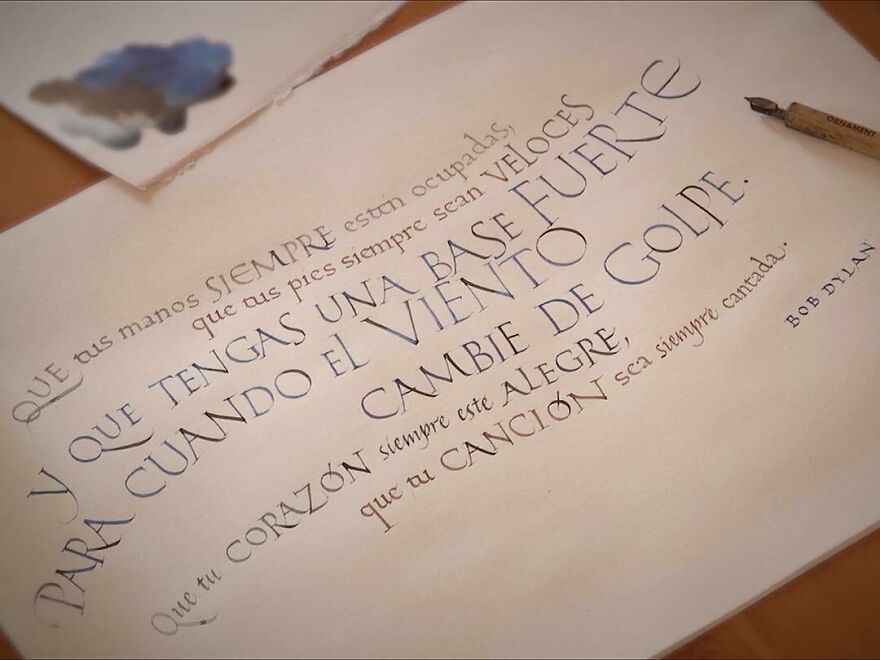 QUE tus manos SIEMPRE estén ocupadas,
que tus pies siempre sean VELOCES
Y QUE TENGAS UNA BASE FUERTE
PARA CUANDO EL VIENTO
CAMBIE DE GOLPE.
Que tu CORAZÓN siempre este ALEGRE,
que tu CANCIÓN sea siempre cantada.
BOB DYLAN
ORNAMENT